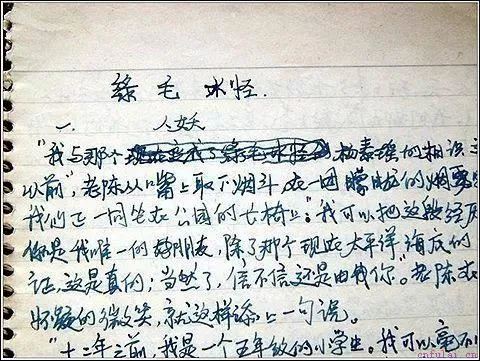 绿毛水怪.
一. 人妖
“我与那个杨素瑶的相识
以前”老陈从嘴上取下烟斗,在一团朦胧的烟雾
我们正一同坐在公园的长椅上。“我可以把这段经历
你是我唯一的好朋友,除了那个现在太平洋海底的
证,这是真的;当然了,信不信还是由我你”。老陈在
怀疑的微笑,就这样添上一句说。
“十二年之前,我是一个五年级的小学生。我可以毫不
cnfulai.cn